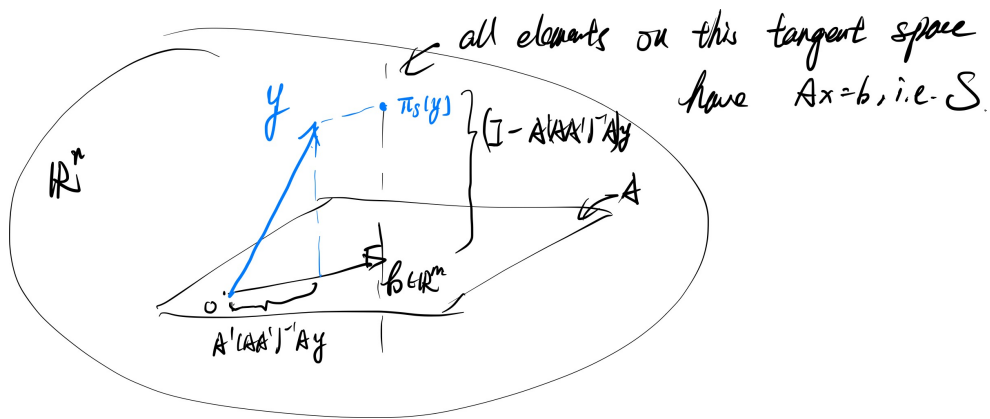 all elements on this tangent space
have Ax=b, i.e. S.
y
π_S(y)
(I - A'(AA')⁻¹A)y
ℝⁿ
A
b∈ℝᵐ
0
A'(AA')⁻¹Ay